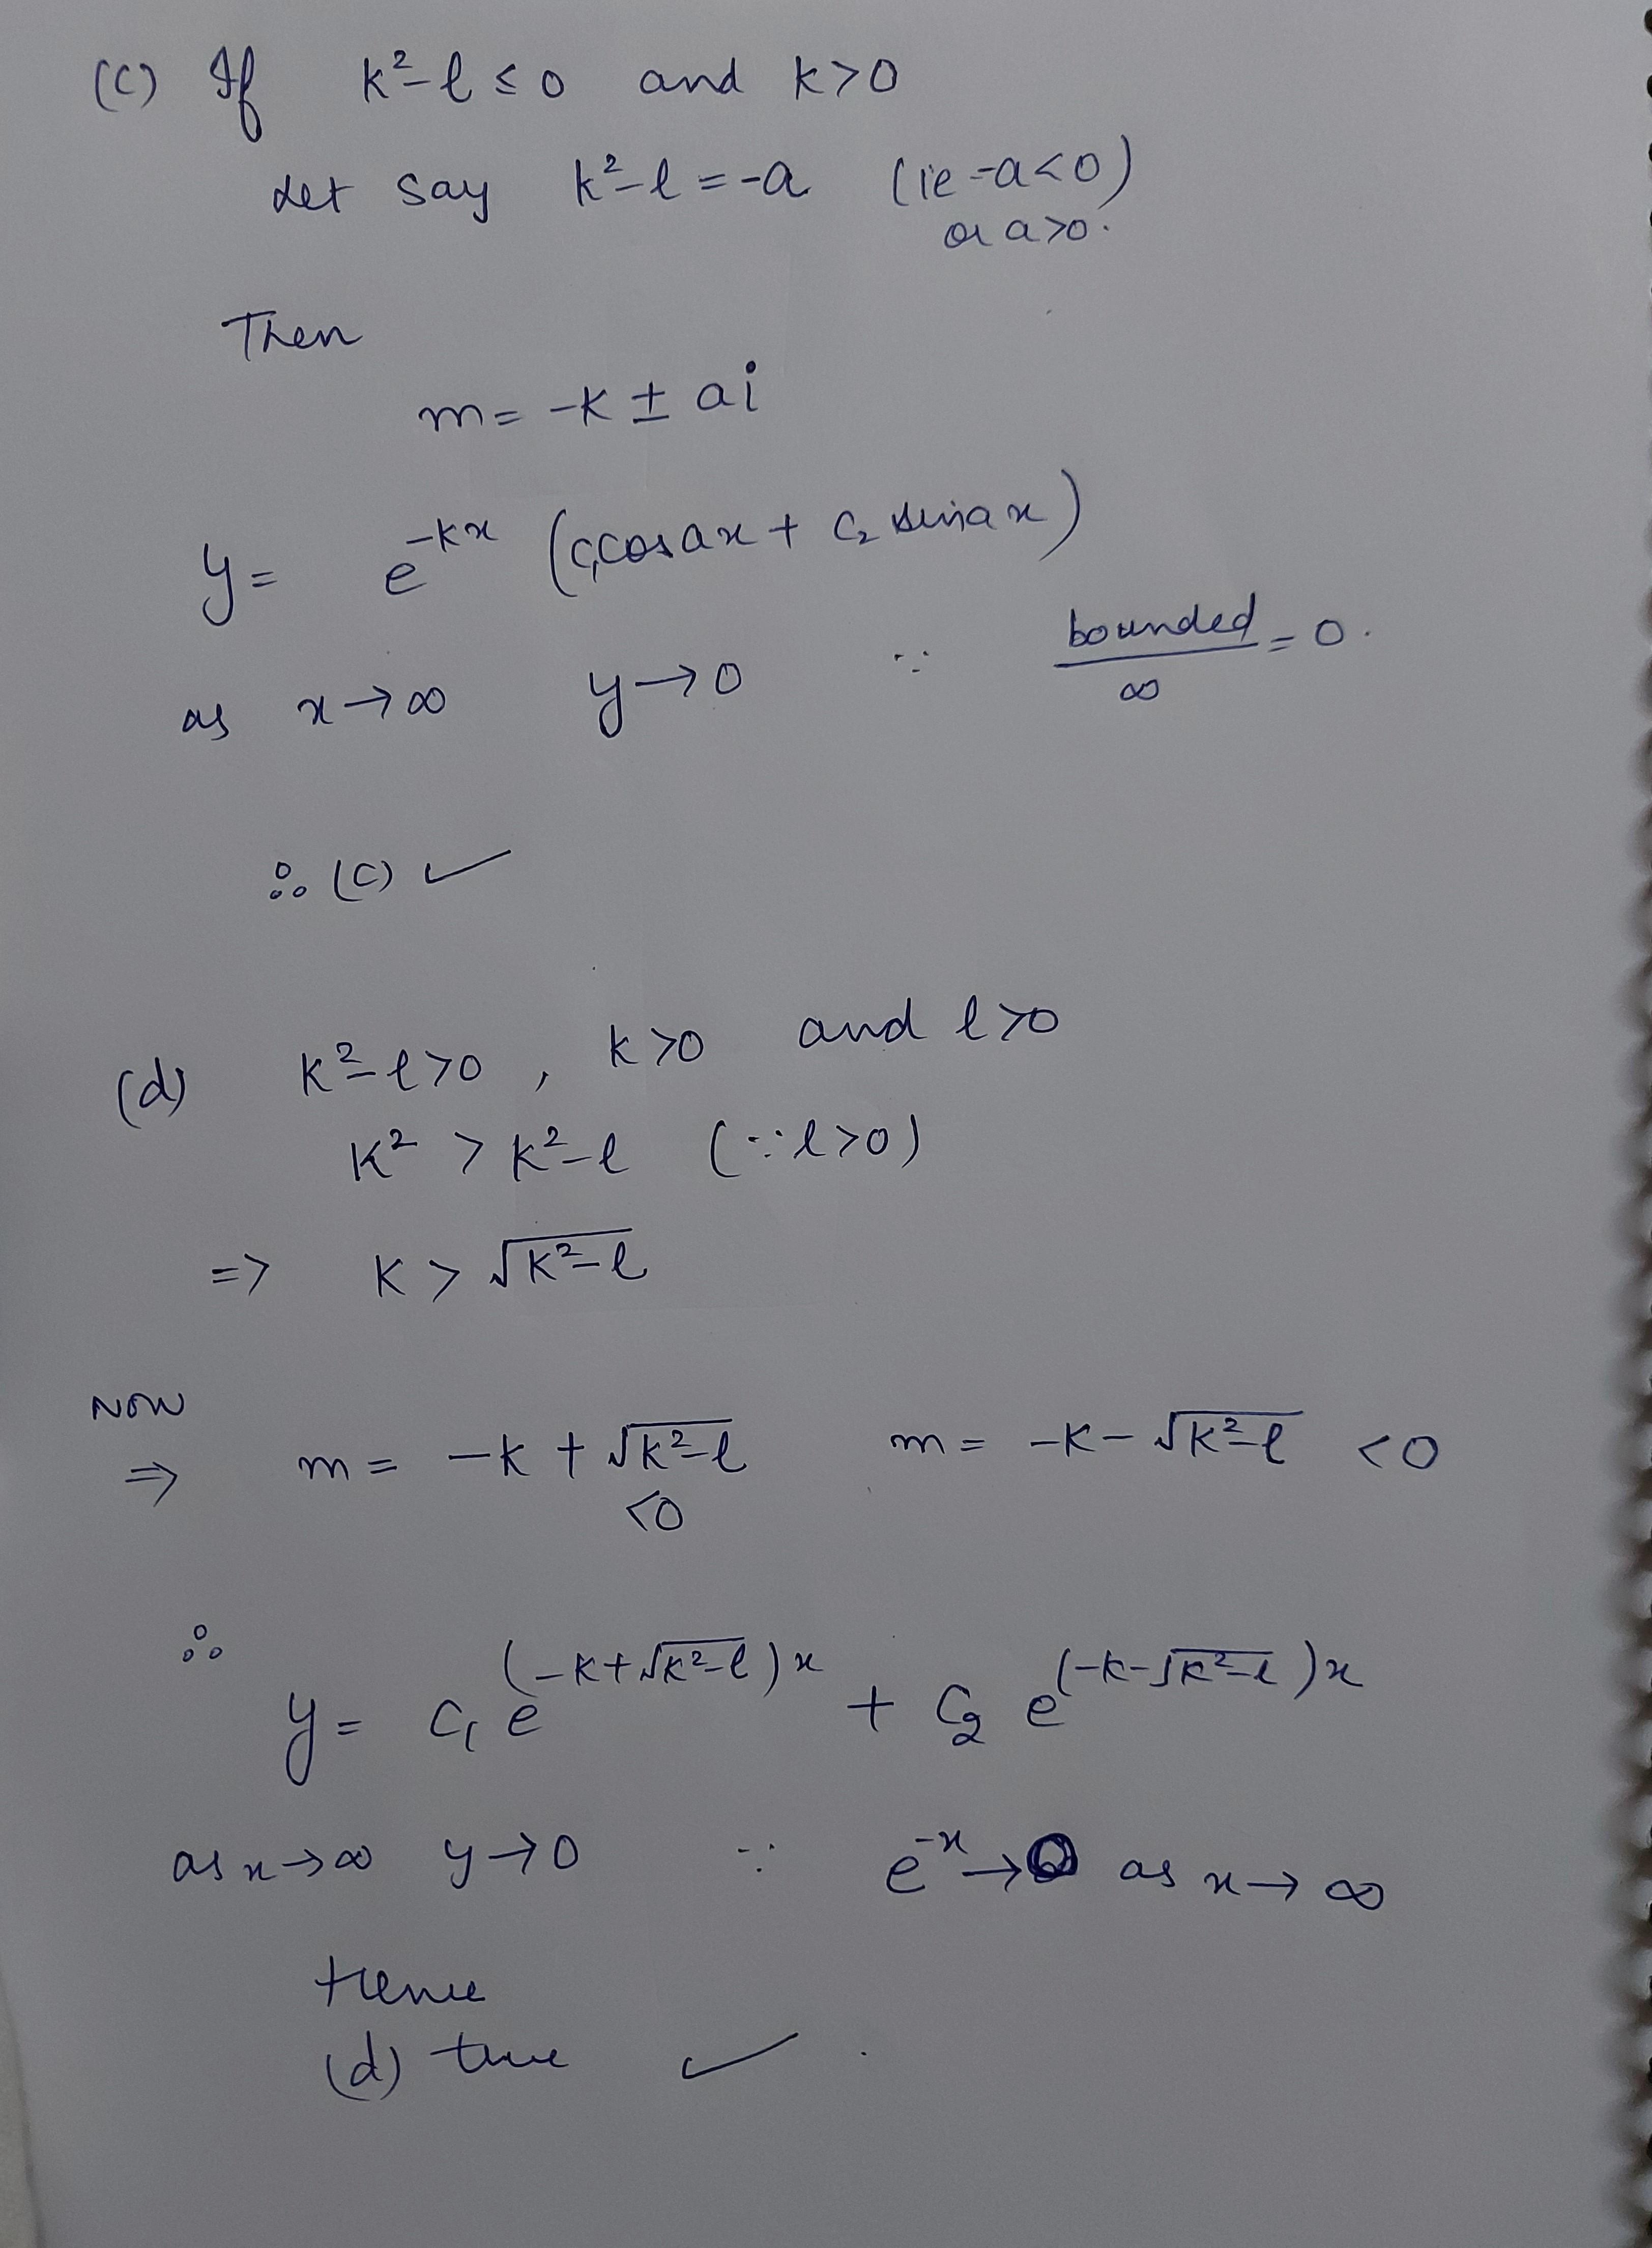 (C) If k²-l ≤ 0 and k>0
Let say k²-l = -a (ie -a<0)
or a>0.
Then
m = -k ± ai
y = e^{-kx} (c₁cosax + c₂ sinax)
as x→∞ y→0 ∵ bounded/∞ = 0.
∴ (C) ✓
(d) k²-l>0 , k>0 and l>0
k² > k²-l (∵ l>0)
=> k > √(k²-l)
NOW
=> m = -k + √(k²-l) m = -k - √(k²-l) <0
<0
∴
y = c₁ e^{(-k+√(k²-l))x} + c₂ e^{(-k-√(k²-l))x}
as x→∞ y→0 ∵ e^{-x}→0 as x→∞
Hence
(d) true ✓ .